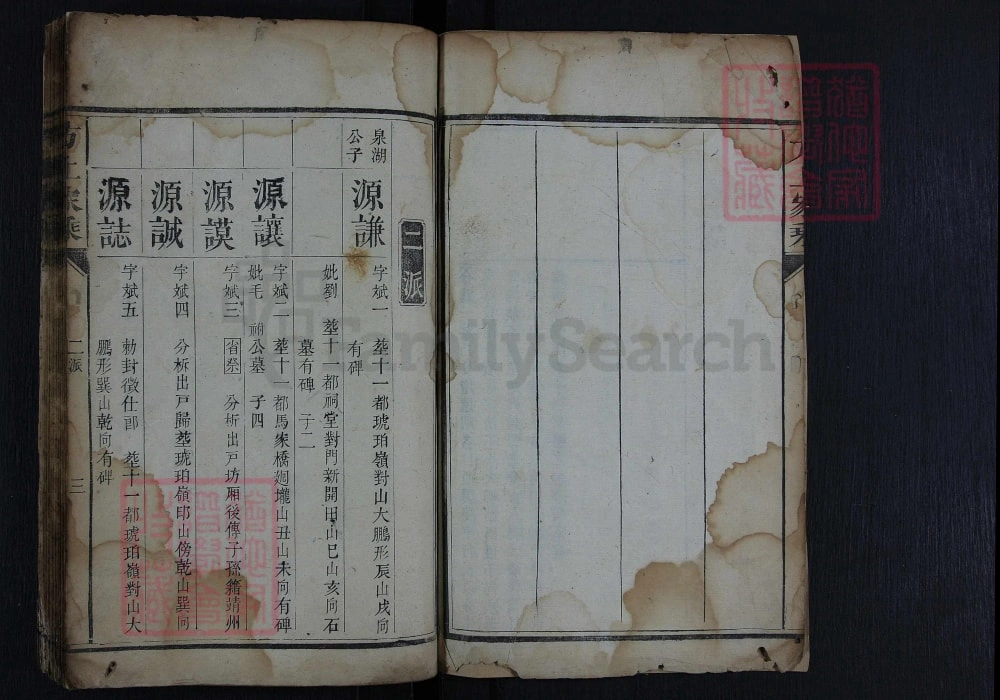 二派
泉湖
公子
源謙
字斌一 塟十一都琥珀嶺對山大鵬形辰山戌向
有碑
妣劉 塟十一都祠堂對門新開田山巳山亥向石
墓有碑 子二
源讓
字斌二 塟十一都馬家橋廻壠山丑山未向有碑
妣毛 祔公墓 子四
源謨
字斌三 省祭 分析出戸坊厢後傳子孫籍靖州
源誠
字斌四 分析出戸歸塟琥珀嶺印山傍乾山巽向
源誌
字斌五 勅封徵仕郎 塟十一都琥珀嶺對山大
鵬形巽山乾向有碑
二派
三
FamilySearch